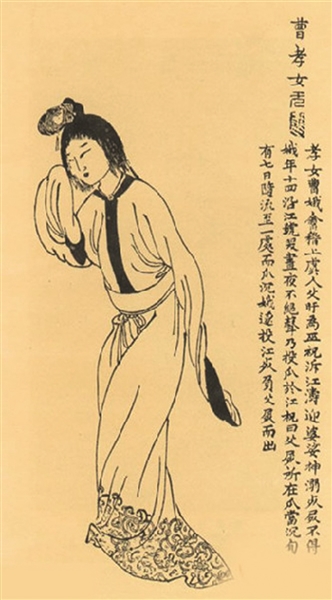 曹孝女
孝女曹娥會稽上虞人父盱為巫祝泝江濤迎婆娑神溺死屍不得
娥年十四沿江號哭晝夜不絕聲乃投瓜於江祝曰父屍所在瓜當沉旬
有七日隨流至一處而瓜沉娥遂投江死負父屍而出